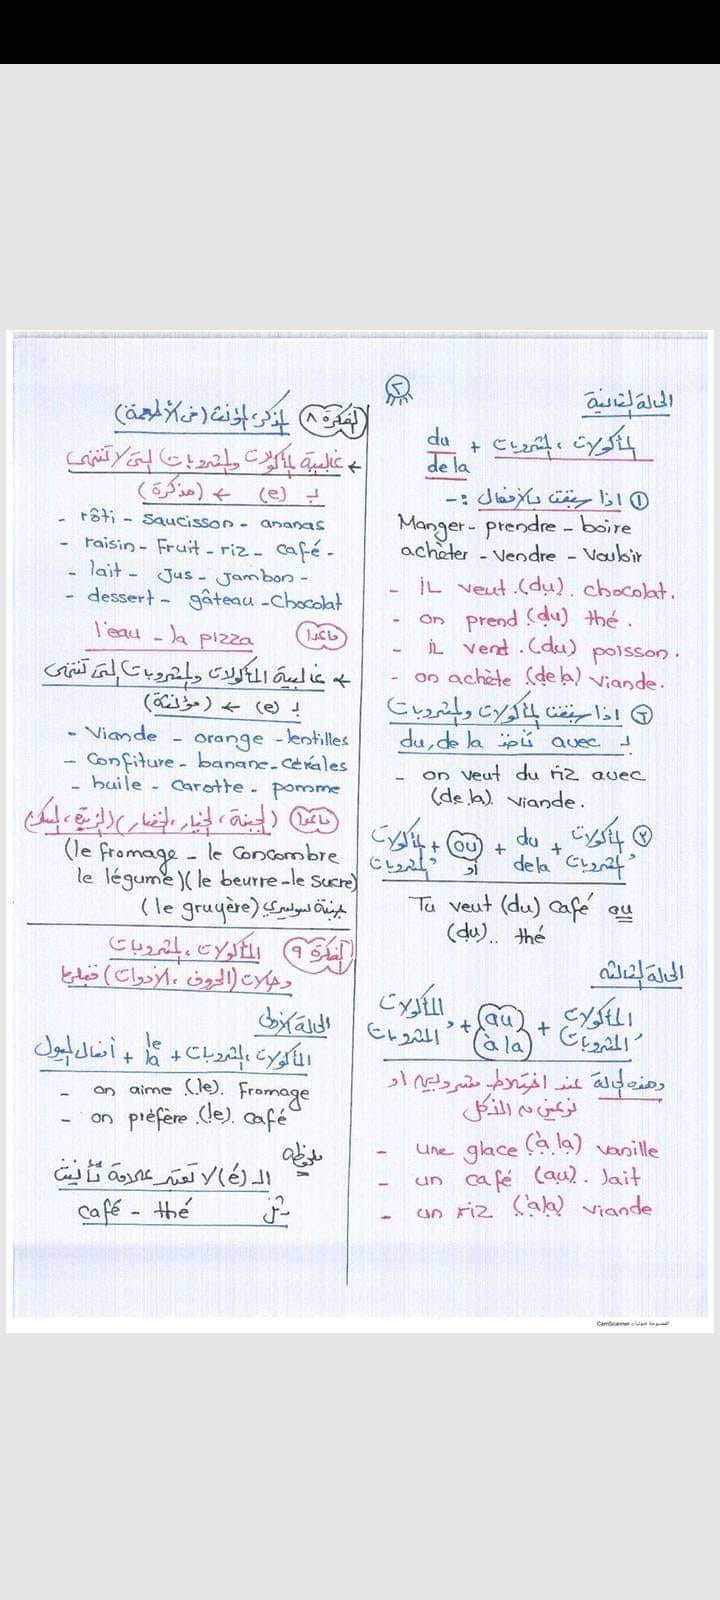 ٢
الفكرة ٨ المذكر، المؤنث (من الأطعمة)
← غالبية المأكولات والمشروبات التى لا تنتهى
بـ (e) ← (مذكرة)
- rôti - saucisson - ananas
- raisin - Fruit - riz - café -
- lait - Jus - Jambon -
- dessert - gâteau - Chocolat
ماعدا l'eau - la pizza
← غالبية المأكولات والمشروبات التى تنتهى
بـ (e) ← (مؤنثة)
- Viande - orange - lentilles
- Confiture - banane - céréales
- huile - carotte - pomme
ماعدا (الجبنة، الخيار، الخضار) (الزبدة، السكر)
(le fromage - le concombre
le légume) (le beurre - le sucre)
جبنة سويسري (le gruyère)
الفكرة ٩ المأكولات، المشروبات
وحالات (الحروف، الأدوات) قبلها
الحالة الأولى
المأكولات، المشروبات + le la + أفعال الميول
- on aime (le). Fromage
- on préfère (le). café
ملحوظة
الـ (é) لا تعتبر علامة تأنيث
مثل café - thé
الحالة الثانية
المأكولات، المشروبات + du de la
① اذا سبقت بالأفعال :-
Manger - prendre - boire
achèter - vendre - Vouloir
- iL veut (du). chocolat.
- on prend (du) thé.
- iL vend. (du) poisson.
- on achète (de la) viande.
② اذا سبقت المأكولات والمشروبات
بـ avec تأخذ du, de la
- on veut du riz avec
(de la) viande.
③ المأكولات المشروبات + du de la + ou أو + المأكولات المشروبات
Tu veut (du) café ou
(du).. thé
الحالة الثالثة
المأكولات المشروبات + au à la + المأكولات المشروبات
وهذه الحالة عند اختلاط مشروبين او
نوعين من الأكل
- une glace (à la) vanille
- un café (au). lait
- un riz (à la) viande
الممسوحة ضوئيا بـ CamScanner